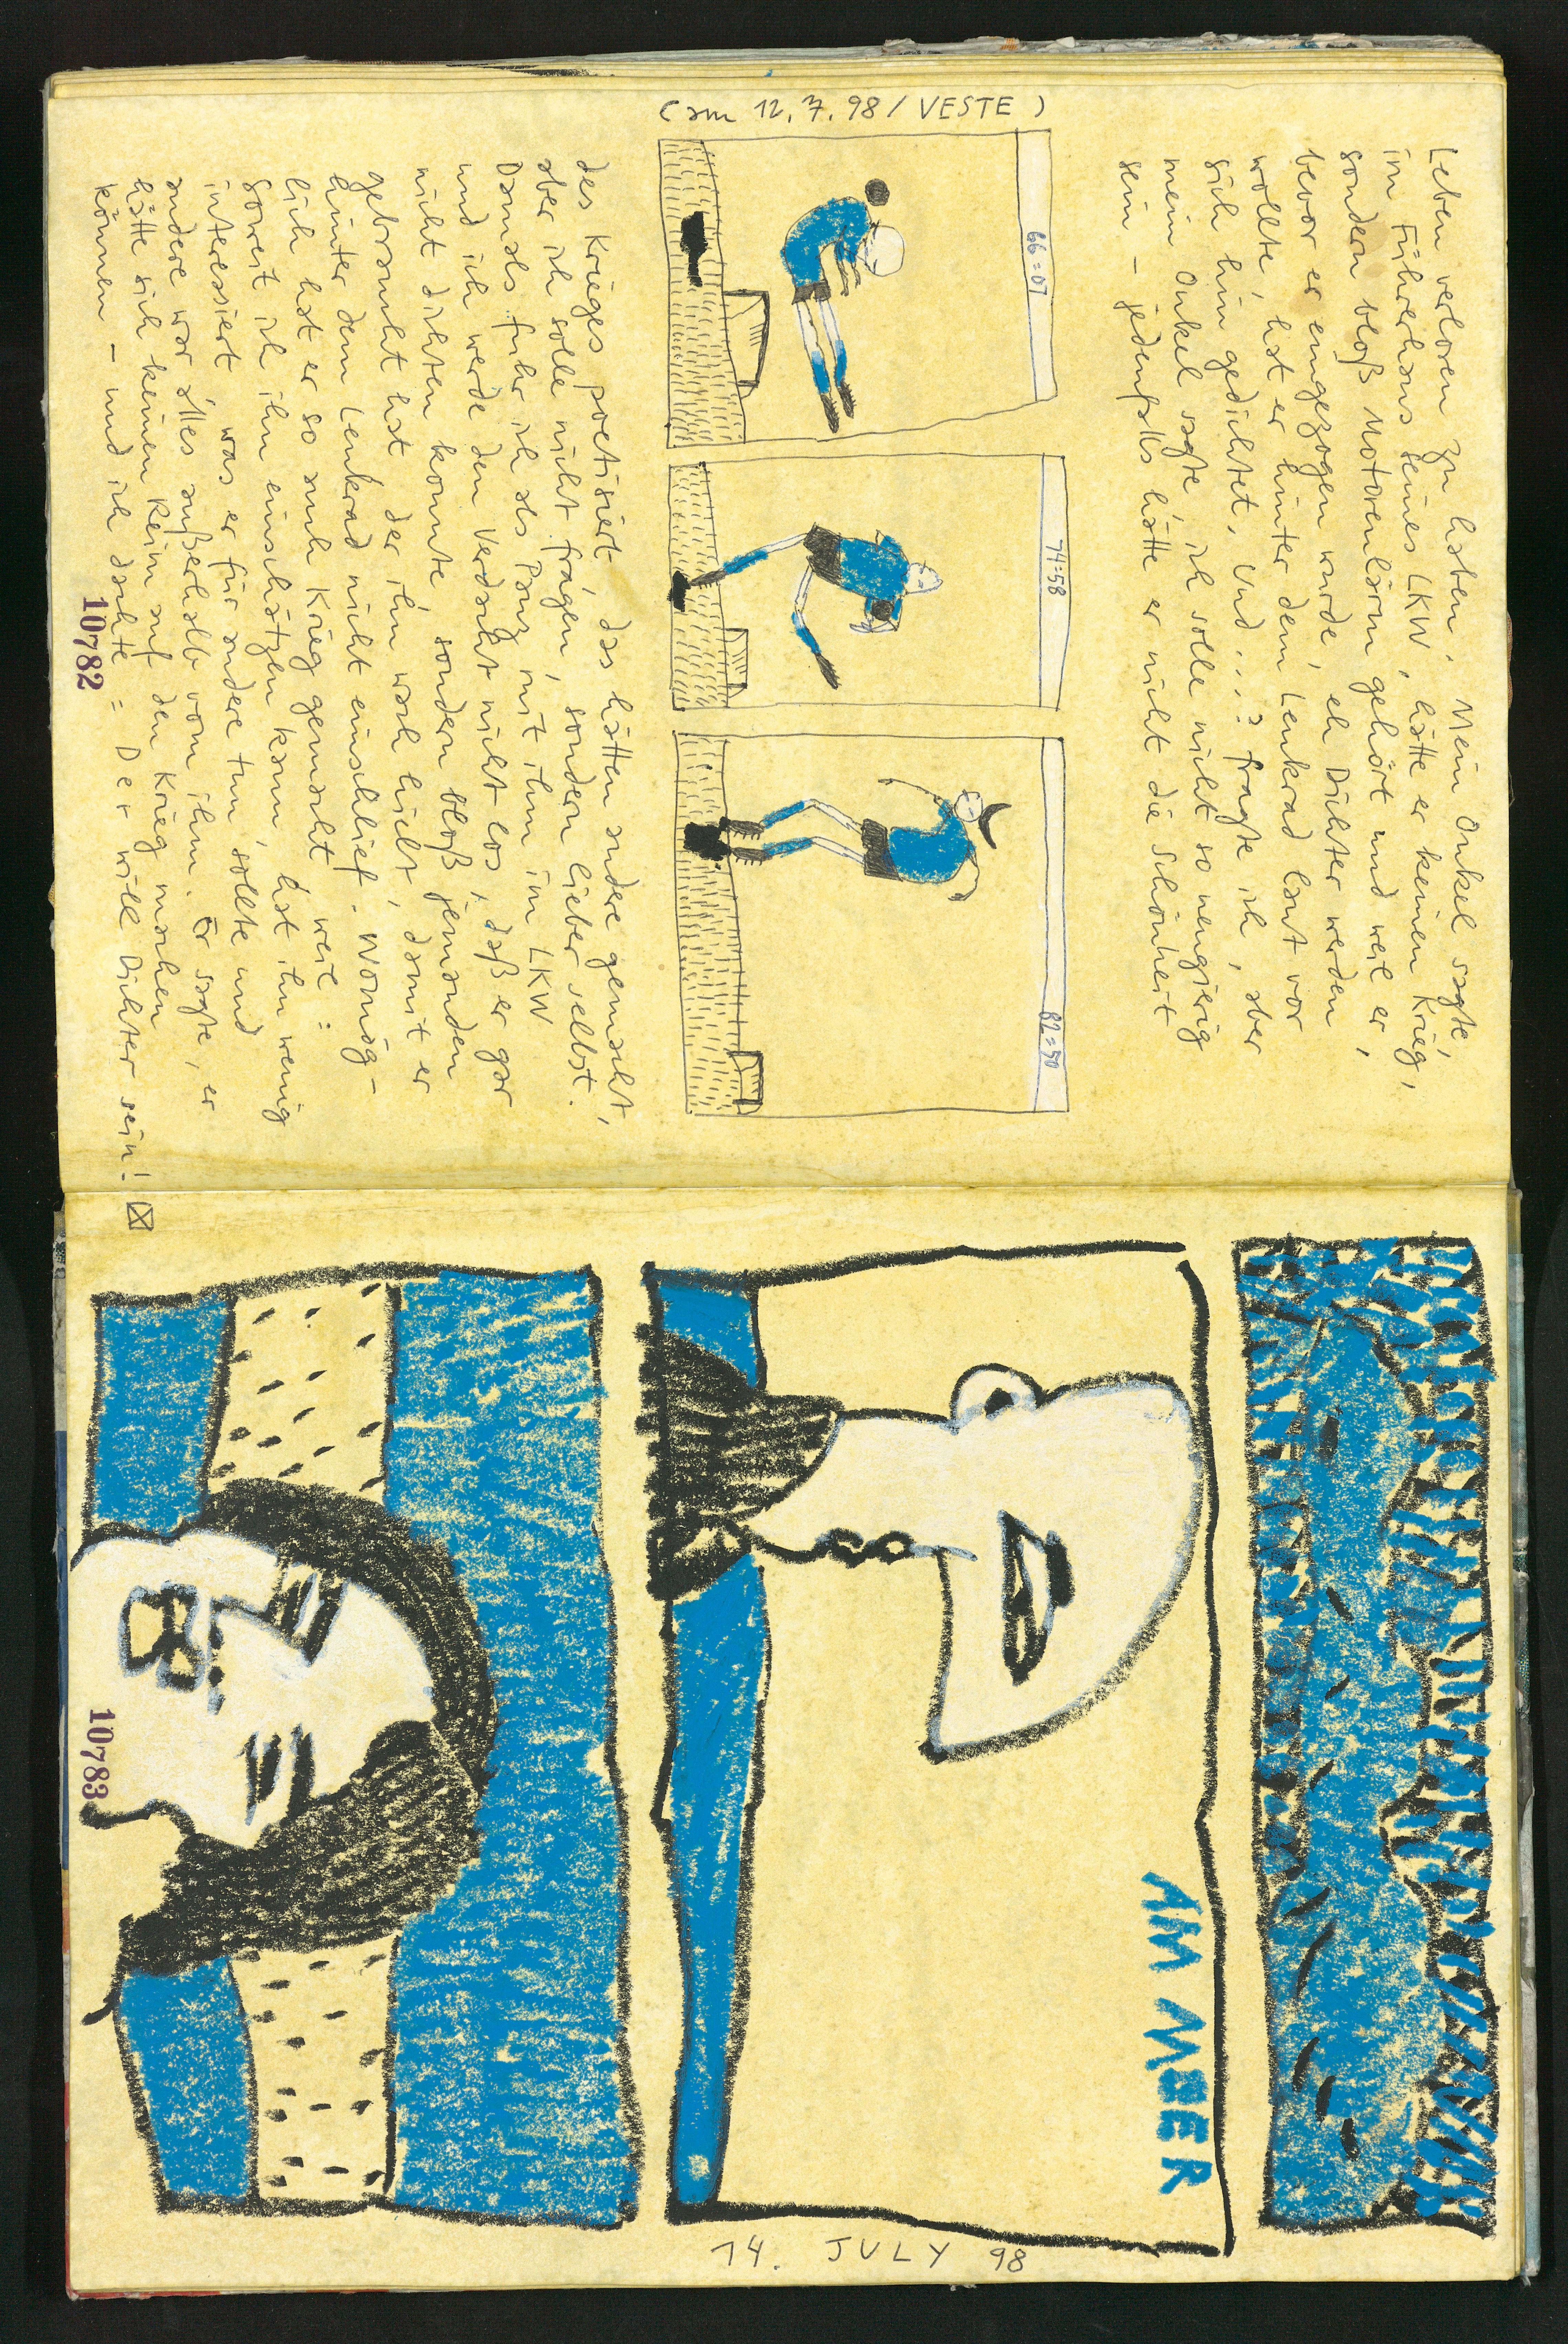 (am 12.7.98/VESTE)
Leben verloren zu haben. Mein Onkel sagte,
im Führerhaus seines LKW, hätte er keinen Krieg,
sondern bloß Motorenlärm gehört und weil er,
bevor er eingezogen wurde, eh Dichter werden
wollte, hat er hinter dem Lenkrad laut vor
sich hin gedichtet. Und...? fragte ich, aber
mein Onkel sagte, ich solle nicht so neugierig
sein – jedenfalls hätte er nicht die Schönheit
66:07
74:58
82:50
des Krieges poetisiert, das hätten andere gemacht,
aber ich solle nicht fragen, sondern lieber selbst.
Damals fuhr ich als Panz mit ihm im LKW
und ich werde den Verdacht nicht los, daß er gar
nicht dichten konnte, sondern bloß jemanden
gebraucht hat, der ihn wach hielt, damit er
hinter dem Lenkrad nicht einschlief. Womög-
lich hat er so auch Krieg gemacht, weil:
soweit ich ihn einschätzen kann, hat ihn wenig
interessiert, was er für andere tun sollte und
andere war alles außerhalb vom ihm. Er sagte, er
hätte sich keinen Reim auf den Krieg machen
können – und ich dachte: Der will Dichter sein!
10782
AM MEER
14. JULY 98
10783